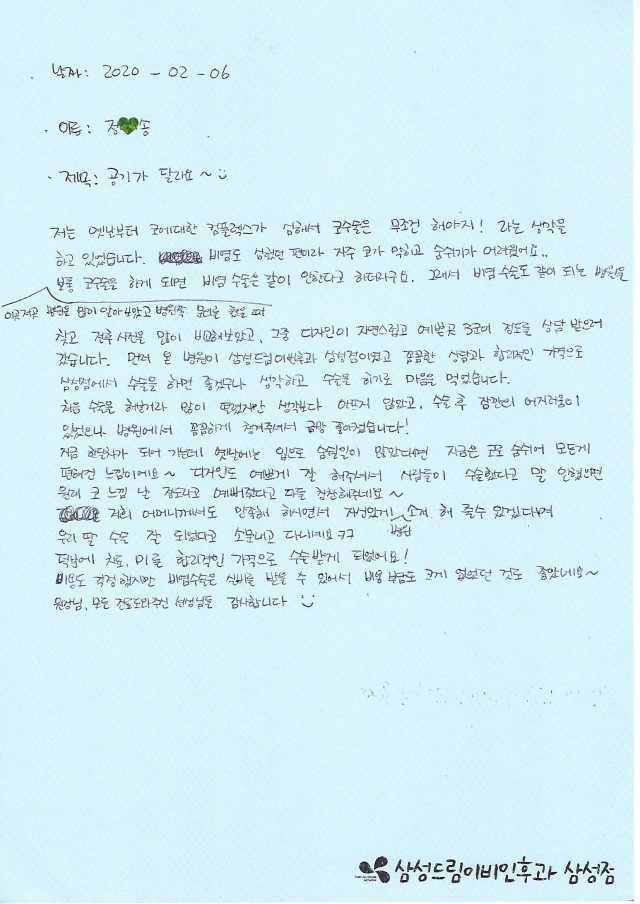 · 날짜: 2020 - 02 - 06
· 이름: 정 송
· 제목: 공기가 달라요~
저는 옛날부터 코에대한 컴플렉스가 심해서 코수술은 무조건 해야지! 라는 생각을
하고 있었습니다. 비염도 심했던 편이라 자주 코가 막히고 숨쉬기가 어려웠어요..
보통 코수술을 하게 되면 비염 수술은 같이 안한다고 하더라구요. 그래서 비염 수술도 같이 되는 병원을
이곳저곳 병원을 많이 알아보았고 병원쪽 문의를 했을 때
찾고 전후사진을 많이 비교해보았고, 그중 디자인이 자연스럽고 예쁜곳 3군데 정도를 상담 받으러
갔습니다. 먼저 온 병원이 삼성드림이비인후과 삼성점이였고 꼼꼼한 상담과 합리적인 가격으로
삼성점에서 수술을 하면 좋겠구나 생각하고 수술을 하기로 마음을 먹었습니다.
처음 수술을 해본거라 많이 떨렸지만 생각보다 아프지 않았고, 수술 후 잠깐의 어지러움이
있었으나 병원에서 꼼꼼하게 챙겨주셔서 금방 좋아졌습니다!
지금 한달차가 되어 가는데 옛날에는 입으로 숨쉴일이 많았다면 지금은 코로 숨쉬어 모든게
편해진 느낌이에요~ 디자인도 예쁘게 잘 해주셔서 사람들이 수술했다고 말 안했으면
원래 코 느낌 난 정도라고 예뻐졌다고 다들 칭찬해주네요~
저희 어머니께서도 만족해 하시면서 자신있게 소개 해 줄수 있겠다며
병원
우리 딸 수술 잘 되었다고 소문내고 다니네요ㅋㅋ
덕분에 치료, 미를 합리적인 가격으로 수술받게 되었어요!
비용도 걱정했지만 비염수술은 실비를 받을 수 있어서 비용 부담도 크게 없었던 것도 좋았네요~
원장님, 모든 진료도와주신 선생님들 감사합니다
삼성드림이비인후과 삼성점